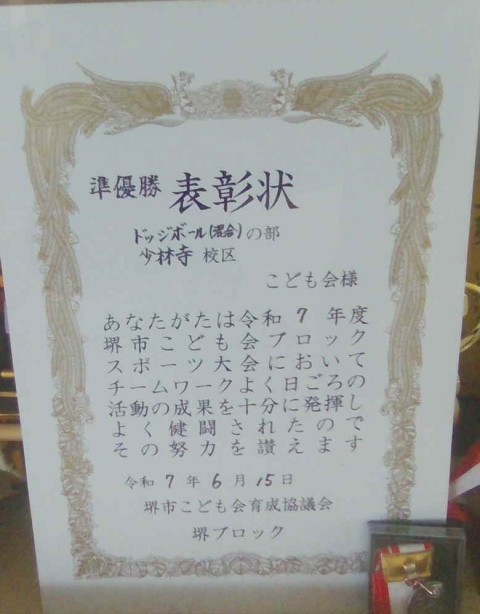 準優勝 表彰状
ドッジボール(混合)の部
少林寺 校区
こども会様
あなたがたは令和7年度
堺市こども会ブロック
スポーツ大会において
チームワークよく日ごろの
活動の成果を十分に発揮し
よく健闘されたので
その努力を讃えます
令和7年6月15日
堺市こども会育成協議会
堺ブロック